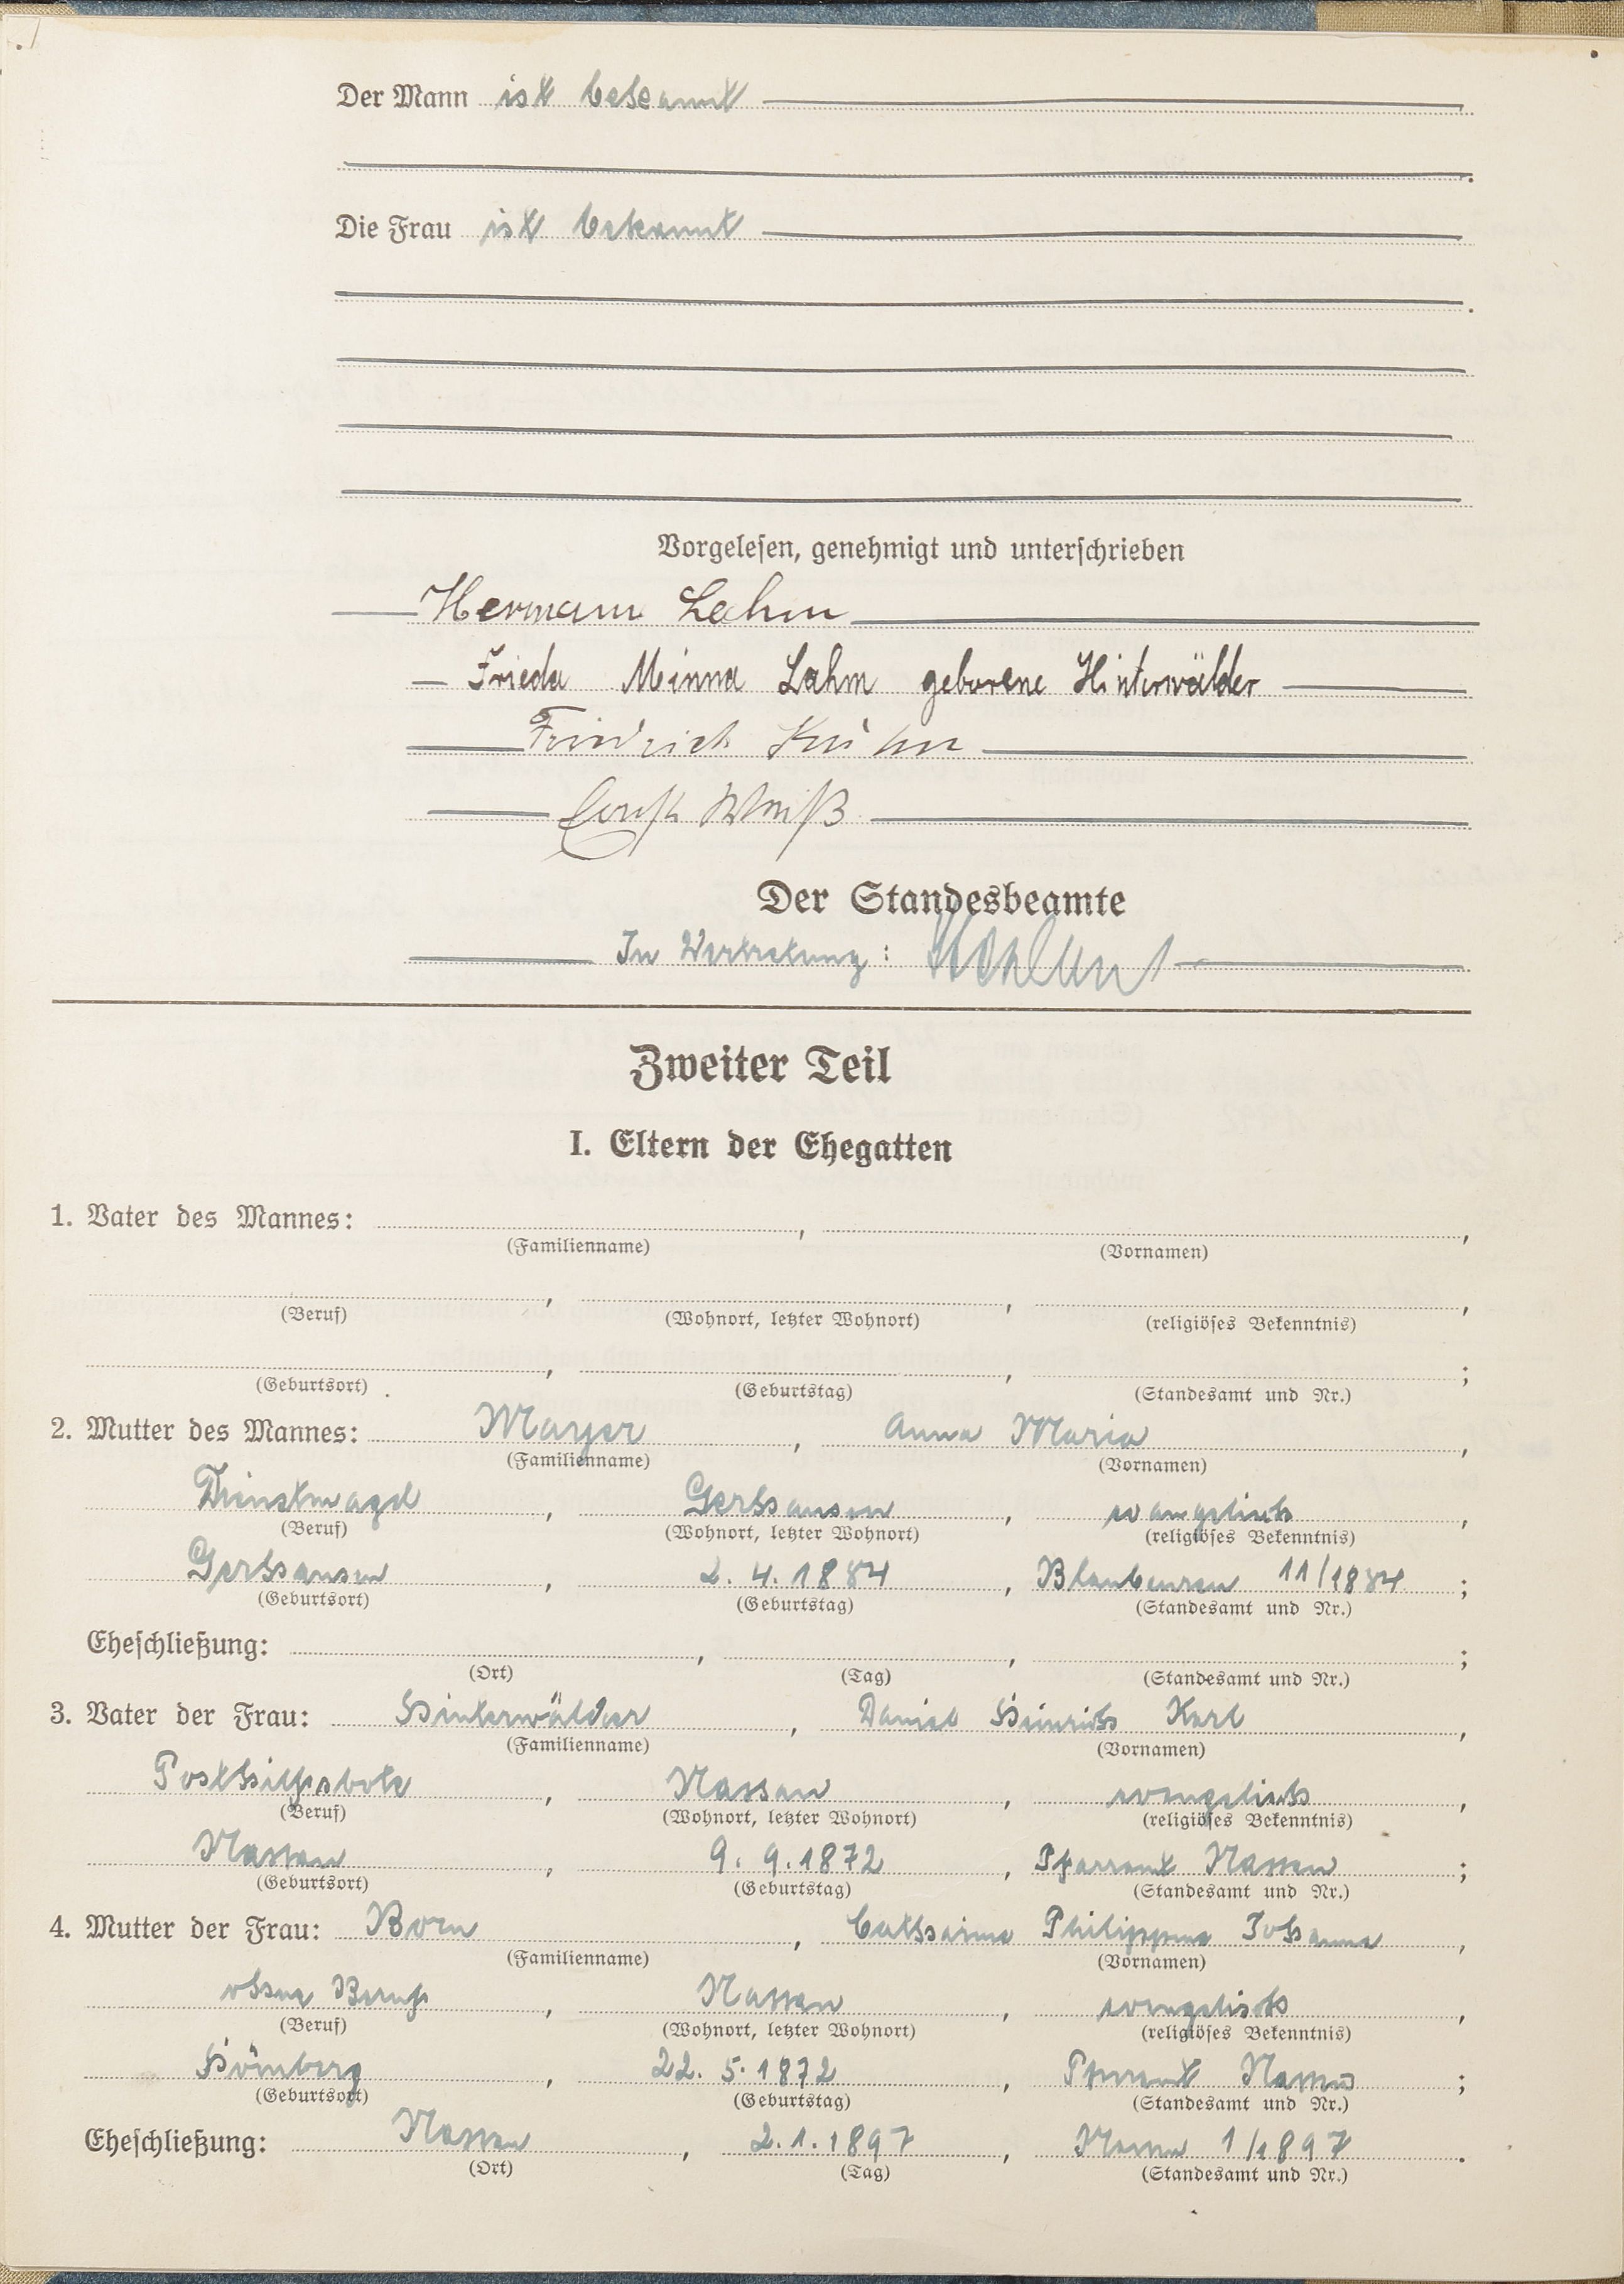 Der Mann ist bekannt
Die Frau ist bekannt
Vorgelesen, genehmigt und unterschrieben
Hermann Lahm
Frieda Minna Lahm geborene Hinterwälder
Friedrich
Ernst Weiß
Der Standesbeamte
In Vertretung:
Zweiter Teil
I. Eltern der Ehegatten
1. Vater des Mannes: , ,
(Familienname) (Vornamen)
, , ,
(Beruf) (Wohnort, letzter Wohnort) (religiöses Bekenntnis)
, , ;
(Geburtsort) (Geburtstag) (Standesamt und Nr.)
2. Mutter des Mannes: Mayer, Anna Maria,
(Familienname) (Vornamen)
Dienstmagd, Gerhausen, evangelisch,
(Beruf) (Wohnort, letzter Wohnort) (religiöses Bekenntnis)
Gerhausen, 2. 4. 1884, Blaubeuren 11/1884;
(Geburtsort) (Geburtstag) (Standesamt und Nr.)
Eheschließung: , , ;
(Ort) (Tag) (Standesamt und Nr.)
3. Vater der Frau: Hinterwälder, Daniel Heinrich Karl,
(Familienname) (Vornamen)
Posthilfsbote, Nassau, evangelisch,
(Beruf) (Wohnort, letzter Wohnort) (religiöses Bekenntnis)
Nassau, 9. 9. 1872, Pfarramt Nassau;
(Geburtsort) (Geburtstag) (Standesamt und Nr.)
4. Mutter der Frau: Born, Cathaine Philippine Johanna,
(Familienname) (Vornamen)
ohne Beruf, Nassau, evangelisch,
(Beruf) (Wohnort, letzter Wohnort) (religiöses Bekenntnis)
Hömberg, 22. 5. 1872, Pfarramt Nassau;
(Geburtsort) (Geburtstag) (Standesamt und Nr.)
Eheschließung: Nassau, 2. 1. 1897, Nassau 1/1897.
(Ort) (Tag) (Standesamt und Nr.)